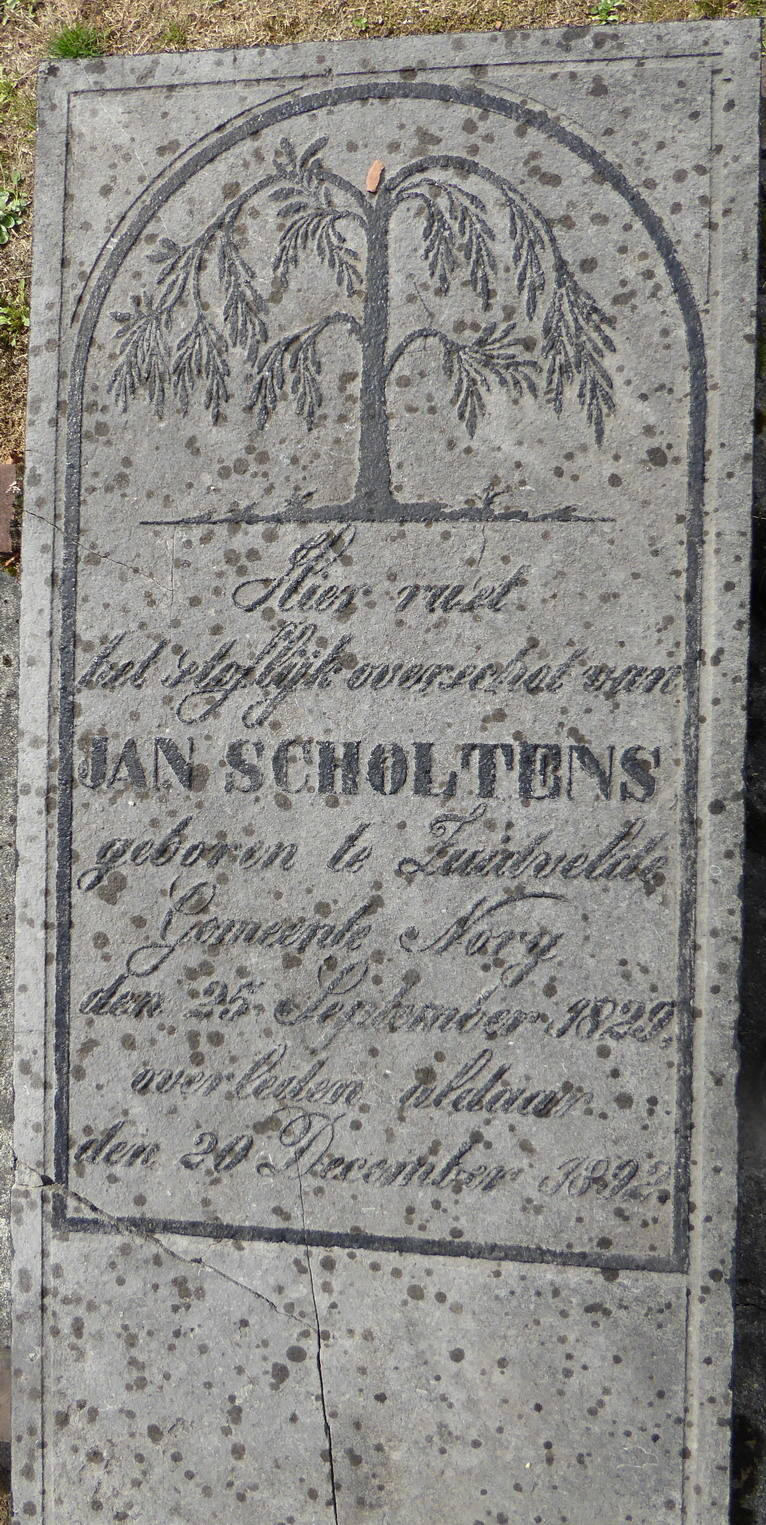 Hier rust
het stoflijk overschot van
JAN SCHOLTENS
geboren te Zuidvelde
Gemeente Norg
den 25 September 1829.
overleden aldaar
den 20 December 1892.